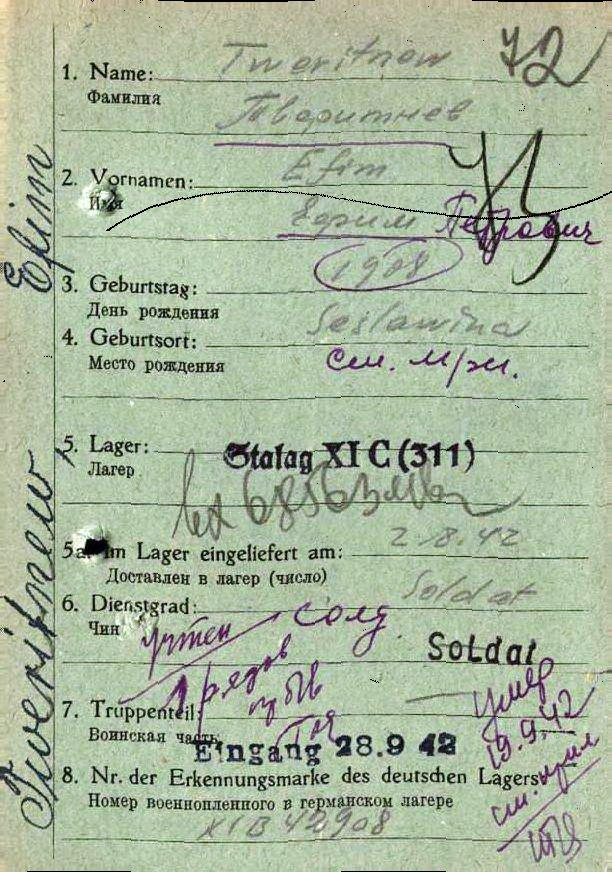 72
1. Name: Tweritnew
Фамилия
Тваритнев
2. Vornamen: Efim
Имя
Ефим Петрович
1908
3. Geburtstag:
День рождения
Seslawina
4. Geburtsort:
Место рождения
см.
5. Lager: Stalag XI C (311)
Лагер
5a. Im Lager eingeliefert am: 2.8.42
Доставлен в лагер (число)
Soldat
6. Dienstgrad:
Чин
учтен солд
Soldat
рядов
умер
19.9.42
7. Truppenteil:
Воинская часть
Eingang 28.9 42
8. Nr. der Erkennungsmarke des deutschen Lagers
Номер военнопленного в германском лагере
XI B 42908
см.
Tweritnew, Efim